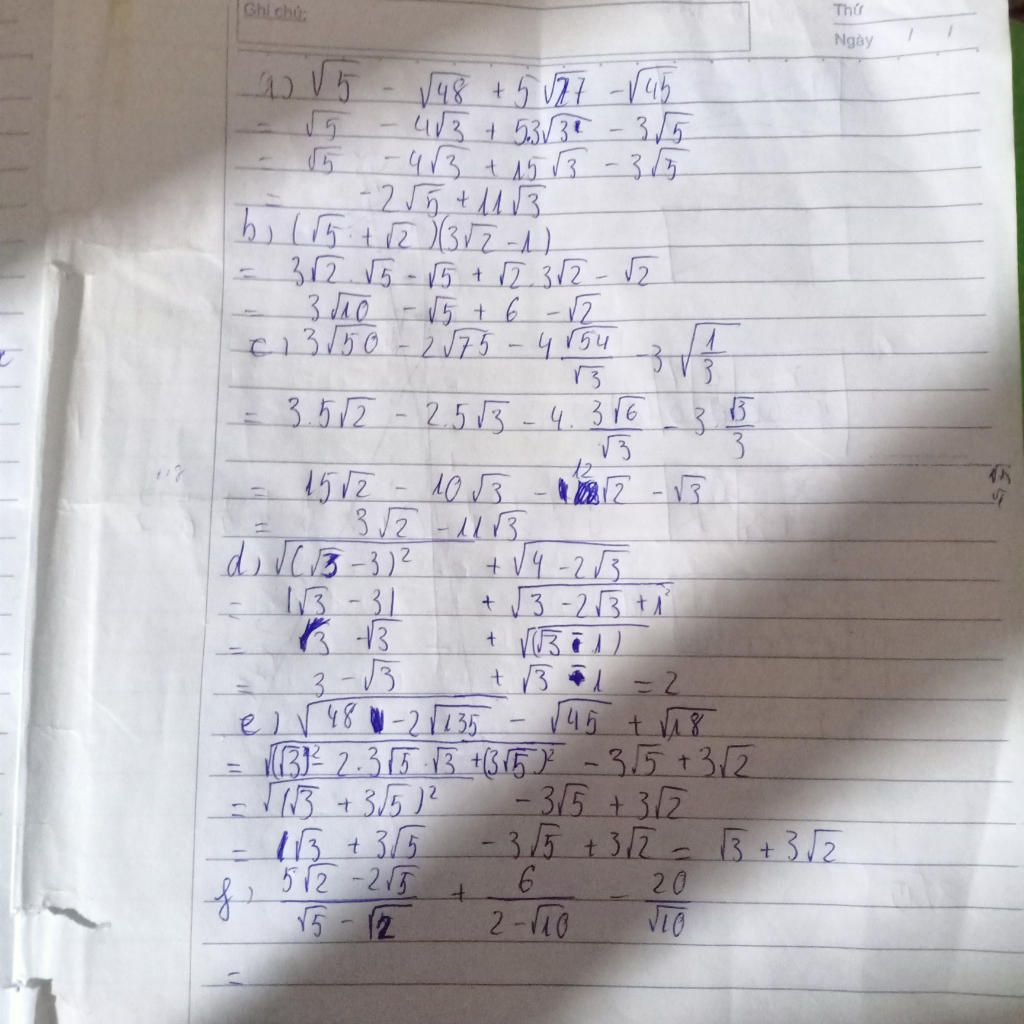 Ghi chú:
Thứ
Ngày / /
a) √5 - √48 + 5√27 - √45
= √5 - 4√3 + 5.3√3 - 3√5
= √5 - 4√3 + 15√3 - 3√5
= -2√5 + 11√3
b) (√5 + √2)(3√2 - 1)
= 3√2.√5 - √5 + √2.3√2 - √2
= 3√10 - √5 + 6 - √2
c) 3√50 - 2√75 - 4 √54/√3 - 3√(1/3)
= 3.5√2 - 2.5√3 - 4. 3√6/√3 - 3. √3/3
= 15√2 - 10√3 - 12√2 - √3
= 3√2 - 11√3
d) √((√3 - 3)²) + √(4 - 2√3)
= |√3 - 3| + √(3 - 2√3 + 1²)
= 3 - √3 + √((√3 - 1))
= 3 - √3 + √3 - 1 = 2
e) √(48 - 2√135) - √45 + √18
= √((√3)² - 2.3√5.√3 + (3√5)²) - 3√5 + 3√2
= √((√3 + 3√5)²) - 3√5 + 3√2
= √3 + 3√5 - 3√5 + 3√2 = √3 + 3√2
f) (5√2 - 2√5)/(√5 - √2) + 6/(2 - √10) - 20/√10
=